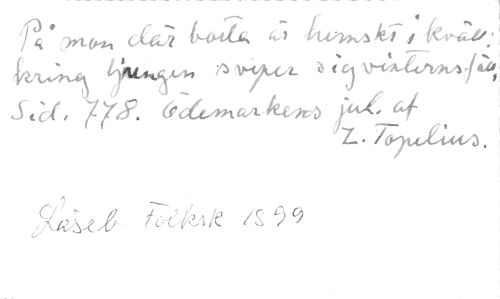 På mon där borta är hemskt i kväll:
kring ljungen sveper sig vinterns fäll,
Sid. 778. Ödemarkens jul. af
Z. Topelius.
Läseb Folksk 1899